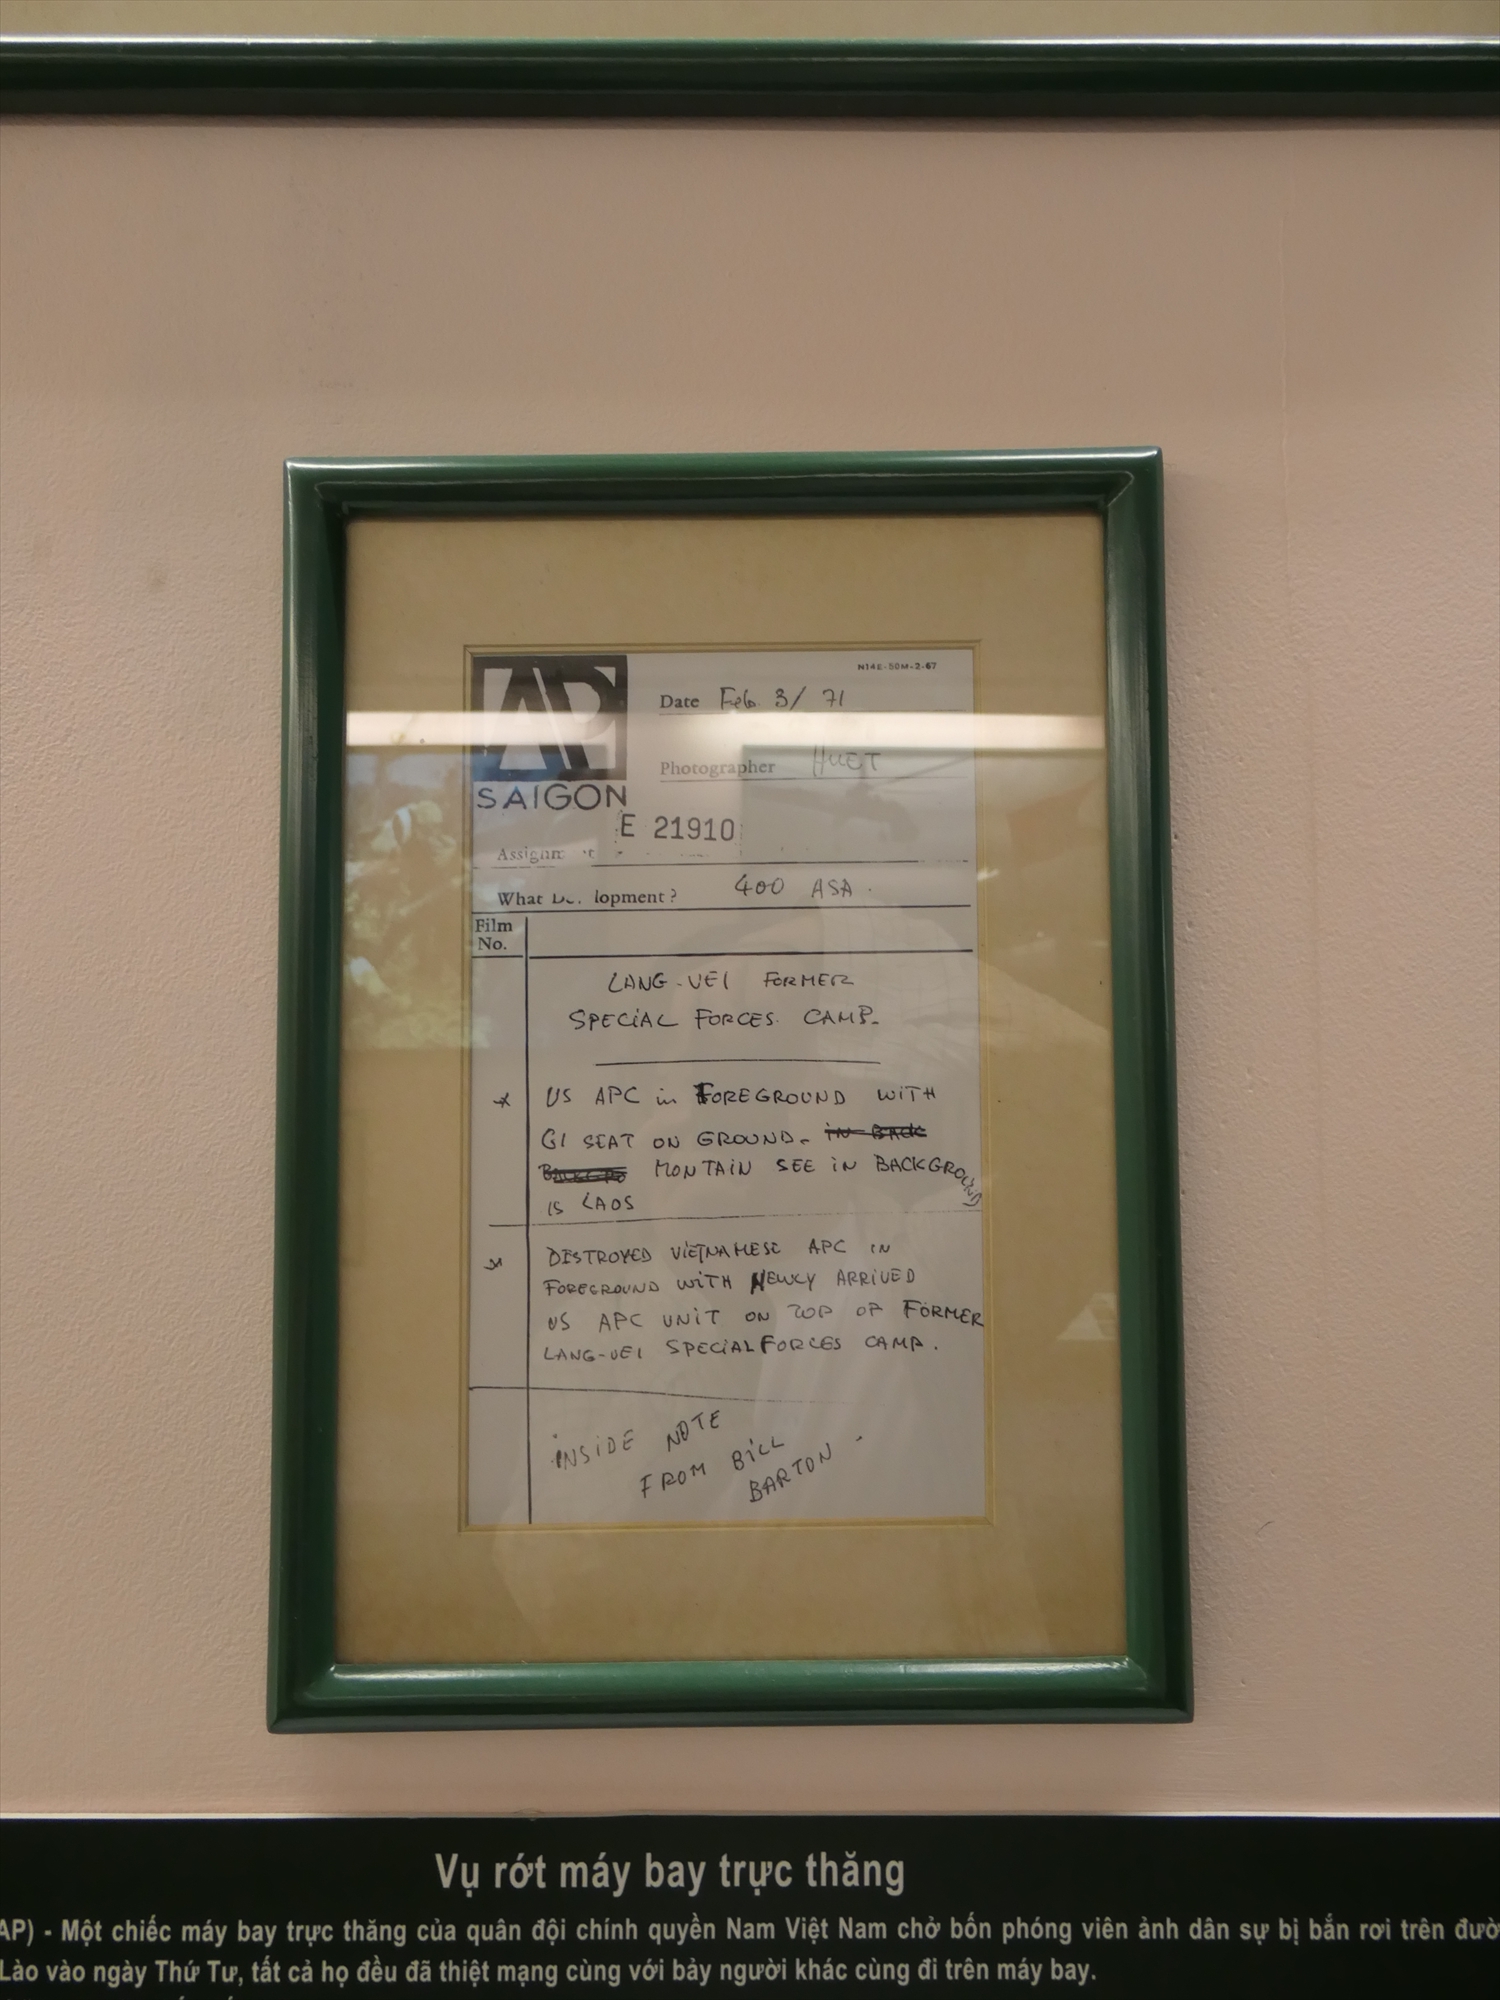 AP
SAIGON
N14E-50M-2-67
Date Feb. 3/ 71
Photographer HUET
E 21910
What lopment? 400 ASA.
Film
No.
LANG-VEI FORMER
SPECIAL FORCES. CAMP.
US APC in FOREGROUND WITH
GI SEAT ON GROUND. IN BACK
MONTAIN SEE IN BACKGROUND
IS LAOS
DESTROYED VIETNAMESE APC IN
FOREGROUND WITH NEWLY ARRIVED
US APC UNIT ON TOP OF FORMER
LANG-VEI SPECIAL FORCES CAMP.
INSIDE NOTE
FROM BILL
BARTON.
Vụ rớt máy bay trực thăng
AP) - Một chiếc máy bay trực thăng của quân đội chính quyền Nam Việt Nam chở bốn phóng viên ảnh dân sự bị bắn rơi trên đườ
Lào vào ngày Thứ Tư, tất cả họ đều đã thiệt mạng cùng với bảy người khác cùng đi trên máy bay.